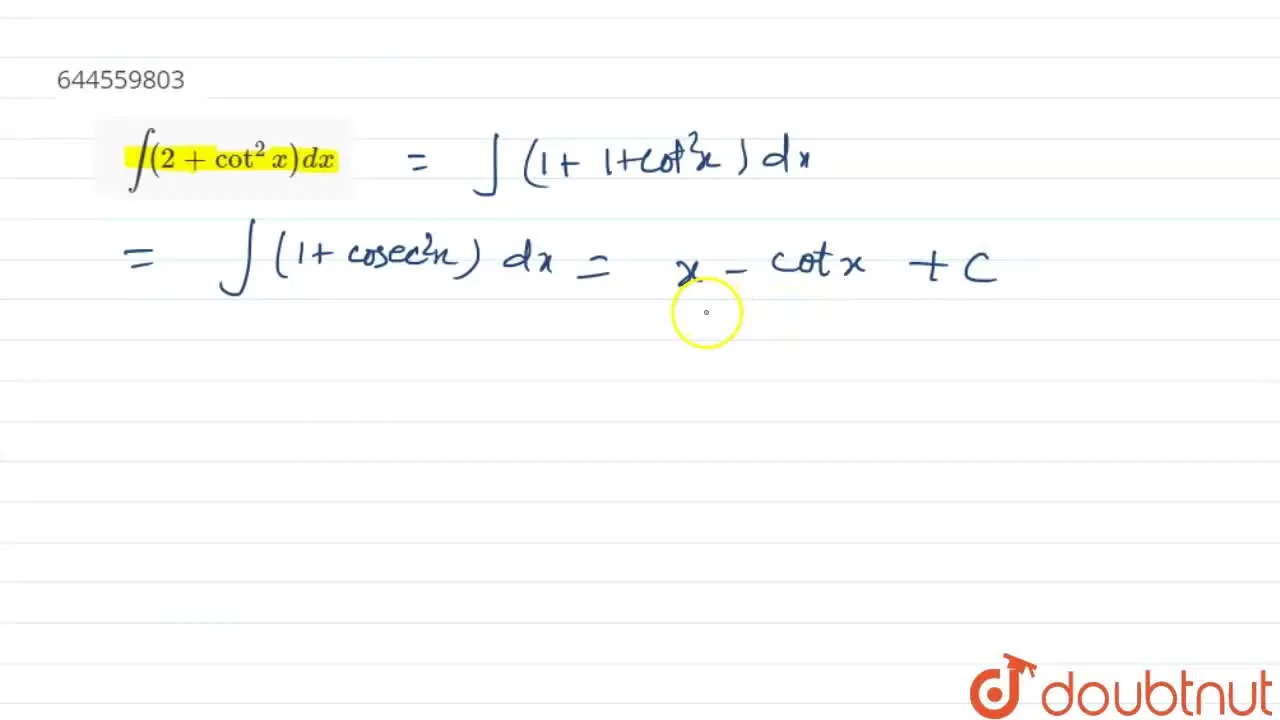 644559803
∫(2 + cot² x)dx = ∫(1 + 1+cot²x) dx
= ∫(1 + cosec²x) dx = x - cotx + C
doubtnut